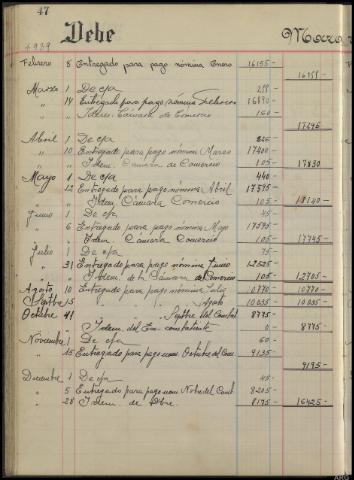 47
1939 Debe
Febrero 8 Entregado para pago nómina Enero 16155-
16155-
Marzo 1 De c/a
" 14 Entregado para pago nómina Febrero 16890-
" " Idem. Cámara de Comercio
17296
Abril 1 De c/a
" 10 Entregado para pago nómina Marzo 17400-
" " Idem. Cámara de Comercio 105- 17830
Mayo 1 De c/a 440-
" 12 Entregado para pago nómina Abril 17595-
" " Idem. Cámara Comercio 105- 18140-
Junio 1 De c/a 45-
" 6 Entregado para pago nómina Mayo 17595-
" " Idem. Cámara Comercio 105- 17745-
Julio 1 De c/a 75-
" 31 Entregado para pago nómina Junio 12525-
" " Idem. de la Cámara de Comercio 105- 12705-
Agosto 10 Entregado para pago nómina Julio 10770- 10770-
Sepbre 15 " " " " Agosto 10035- 10035-
Octubre " " " " Sepbre del Combat 8775-
" Idem. del Em. combatiente 0- 8775-
Noviembre 1 De c/a 60-
" 15 Entregado para pago nom Octubre del Com. 9135-
9195-
Diciembre 1 De c/a 45-
" 5 Entregado para pago nom Nobre del Comt 8205-
" 28 Idem. de Dbre. 8175- 16425-